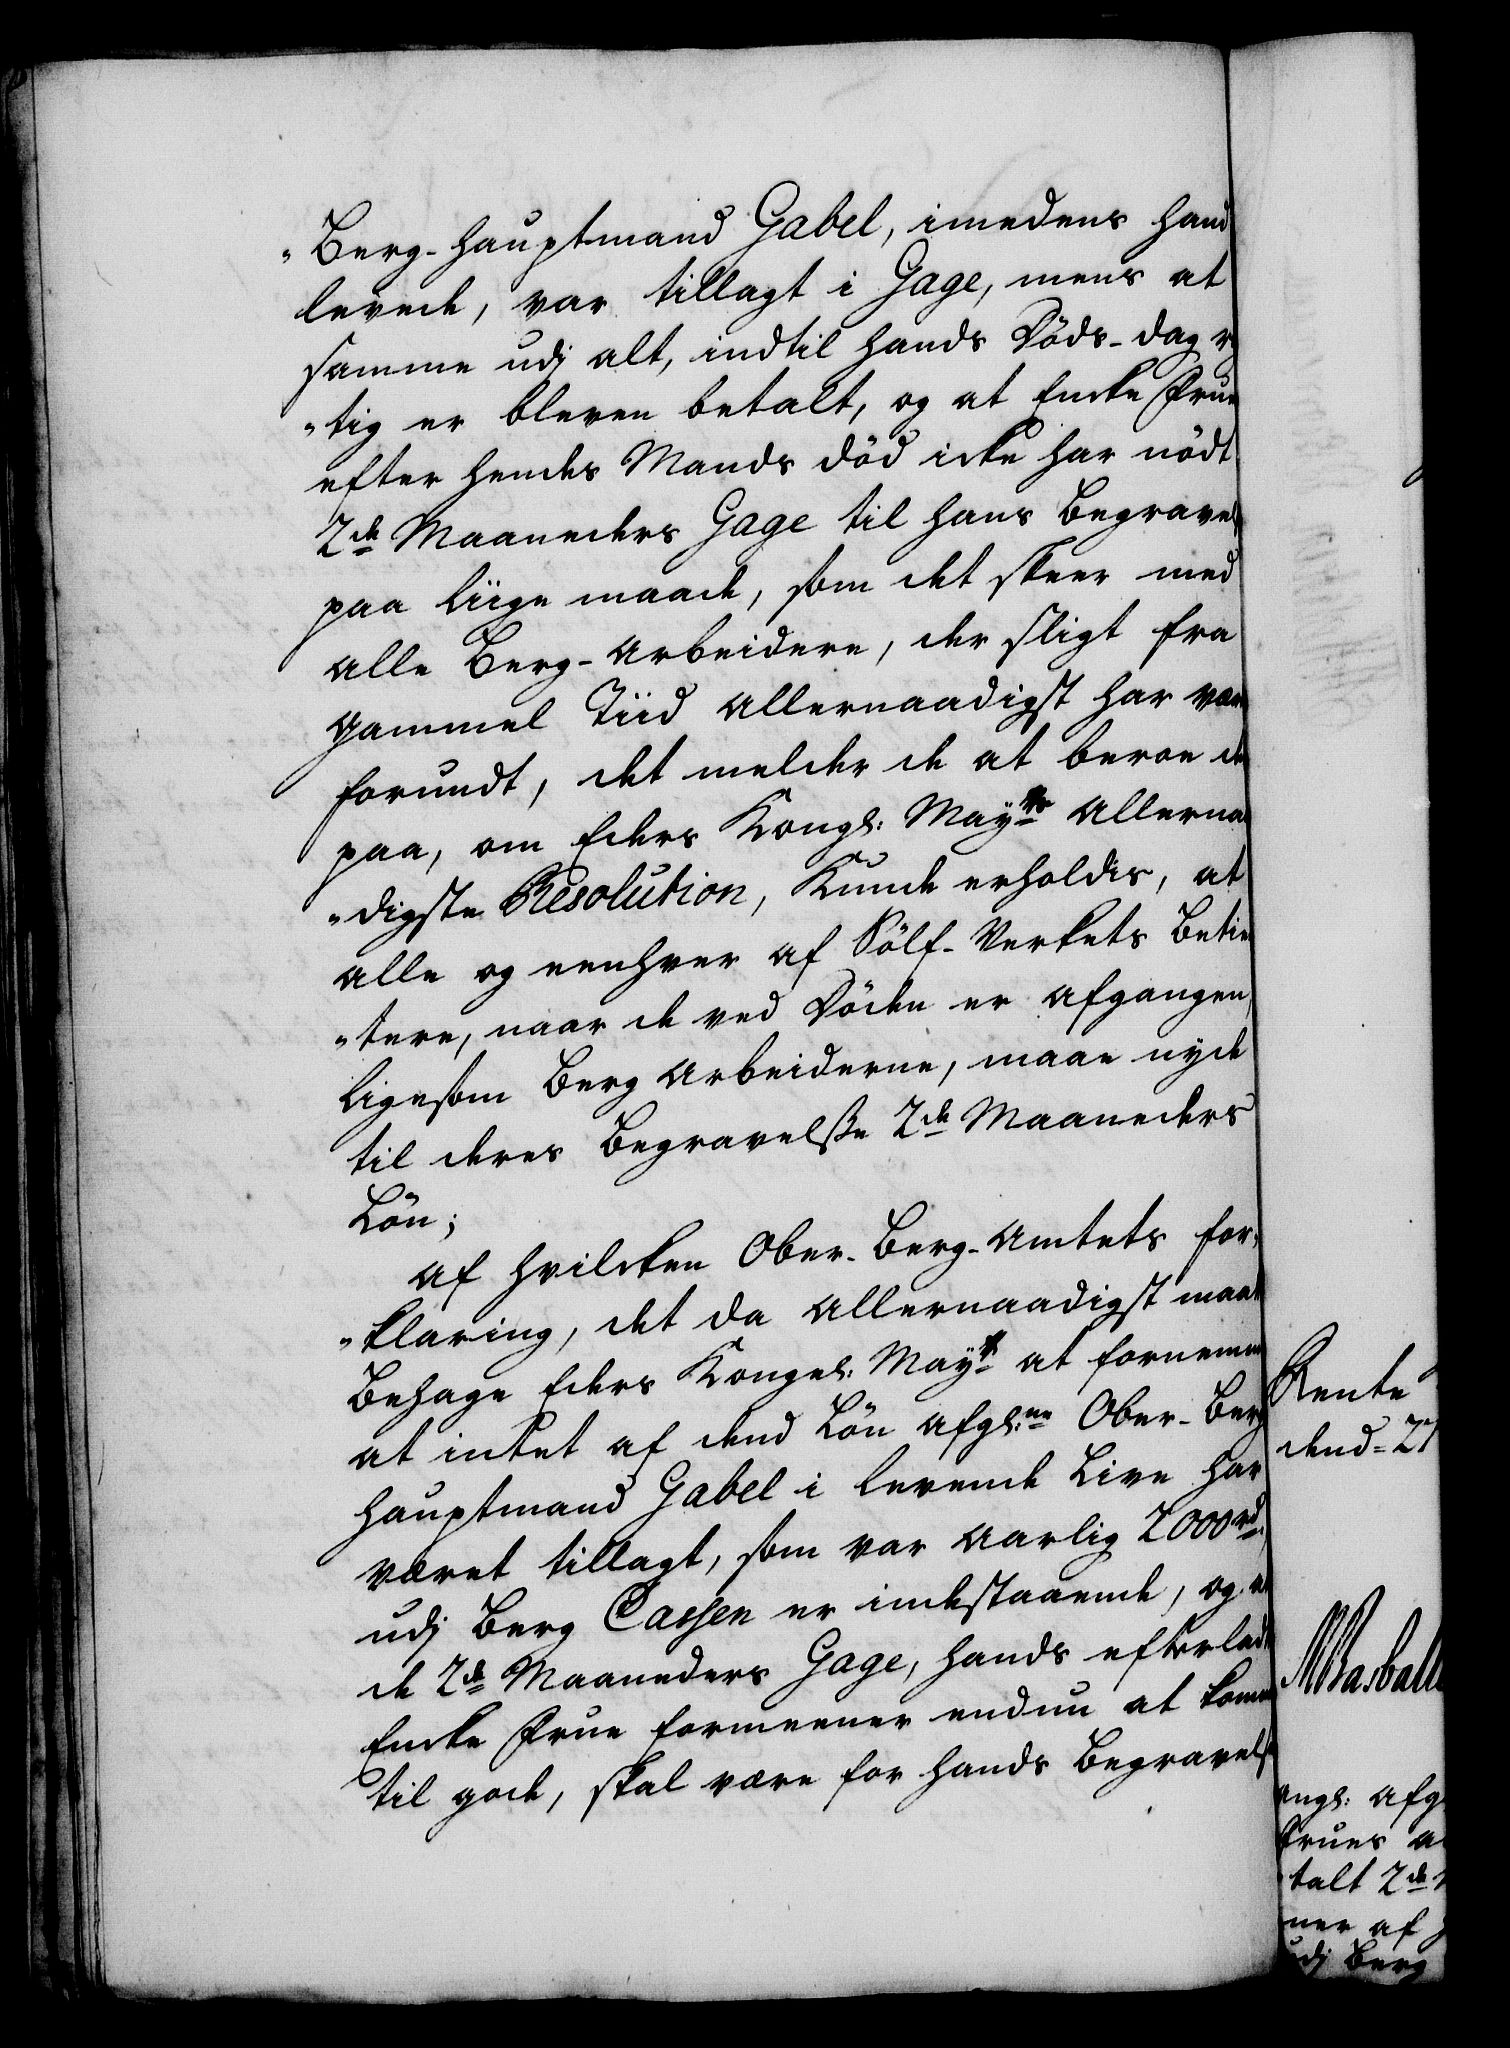 "Berg-Hauptmand Gabel, imedens hand
levede, var tillagt i Gage, mens at
samme udj alt, indtil hands Döds-dag r
"tig er bleven betalt, og at Encke Frue
efter hendes Mands död icke har nödt
2de Maaneders Gage til hans Begravels
paa liige maade, som det skeer med
alle Berg-Arbeidere, der sligt fra
gammel Tiid allernaadigst har vær
forundt, det melder de at beroe de
paa, om Eders Kongl: Mayts allerna
"digste Resolution, Kunde erholdis, at
alle og eenhver af Sölf-Verkets Betie
"tere, naar de ved Döden er afgangen,
ligesom Berg Arbeiderne, maae nyde
til deres Begravelsse 2de Maaneders
Lön;
Af hvilcken Ober-Berg-Amtets for-
"klaring, det da allernaadigst maat
Behage Eders Kongel: Mayt at fornemme
at intet af dend Lön afgl:ne Ober-Berg
Hauptmand Gabel i levende Live har
været tillagt, som var aarlig 2000 rd,
udj Berg Cassen er indestaaende, og a
de 2de Maaneders Gage, hands efterladt
Encke Frue formeener endnu at komme
til gode, skal være for hands Begravels
Rente
dend-27
ngl: afg
Frues a
talt 2de
ner af
udj Berg